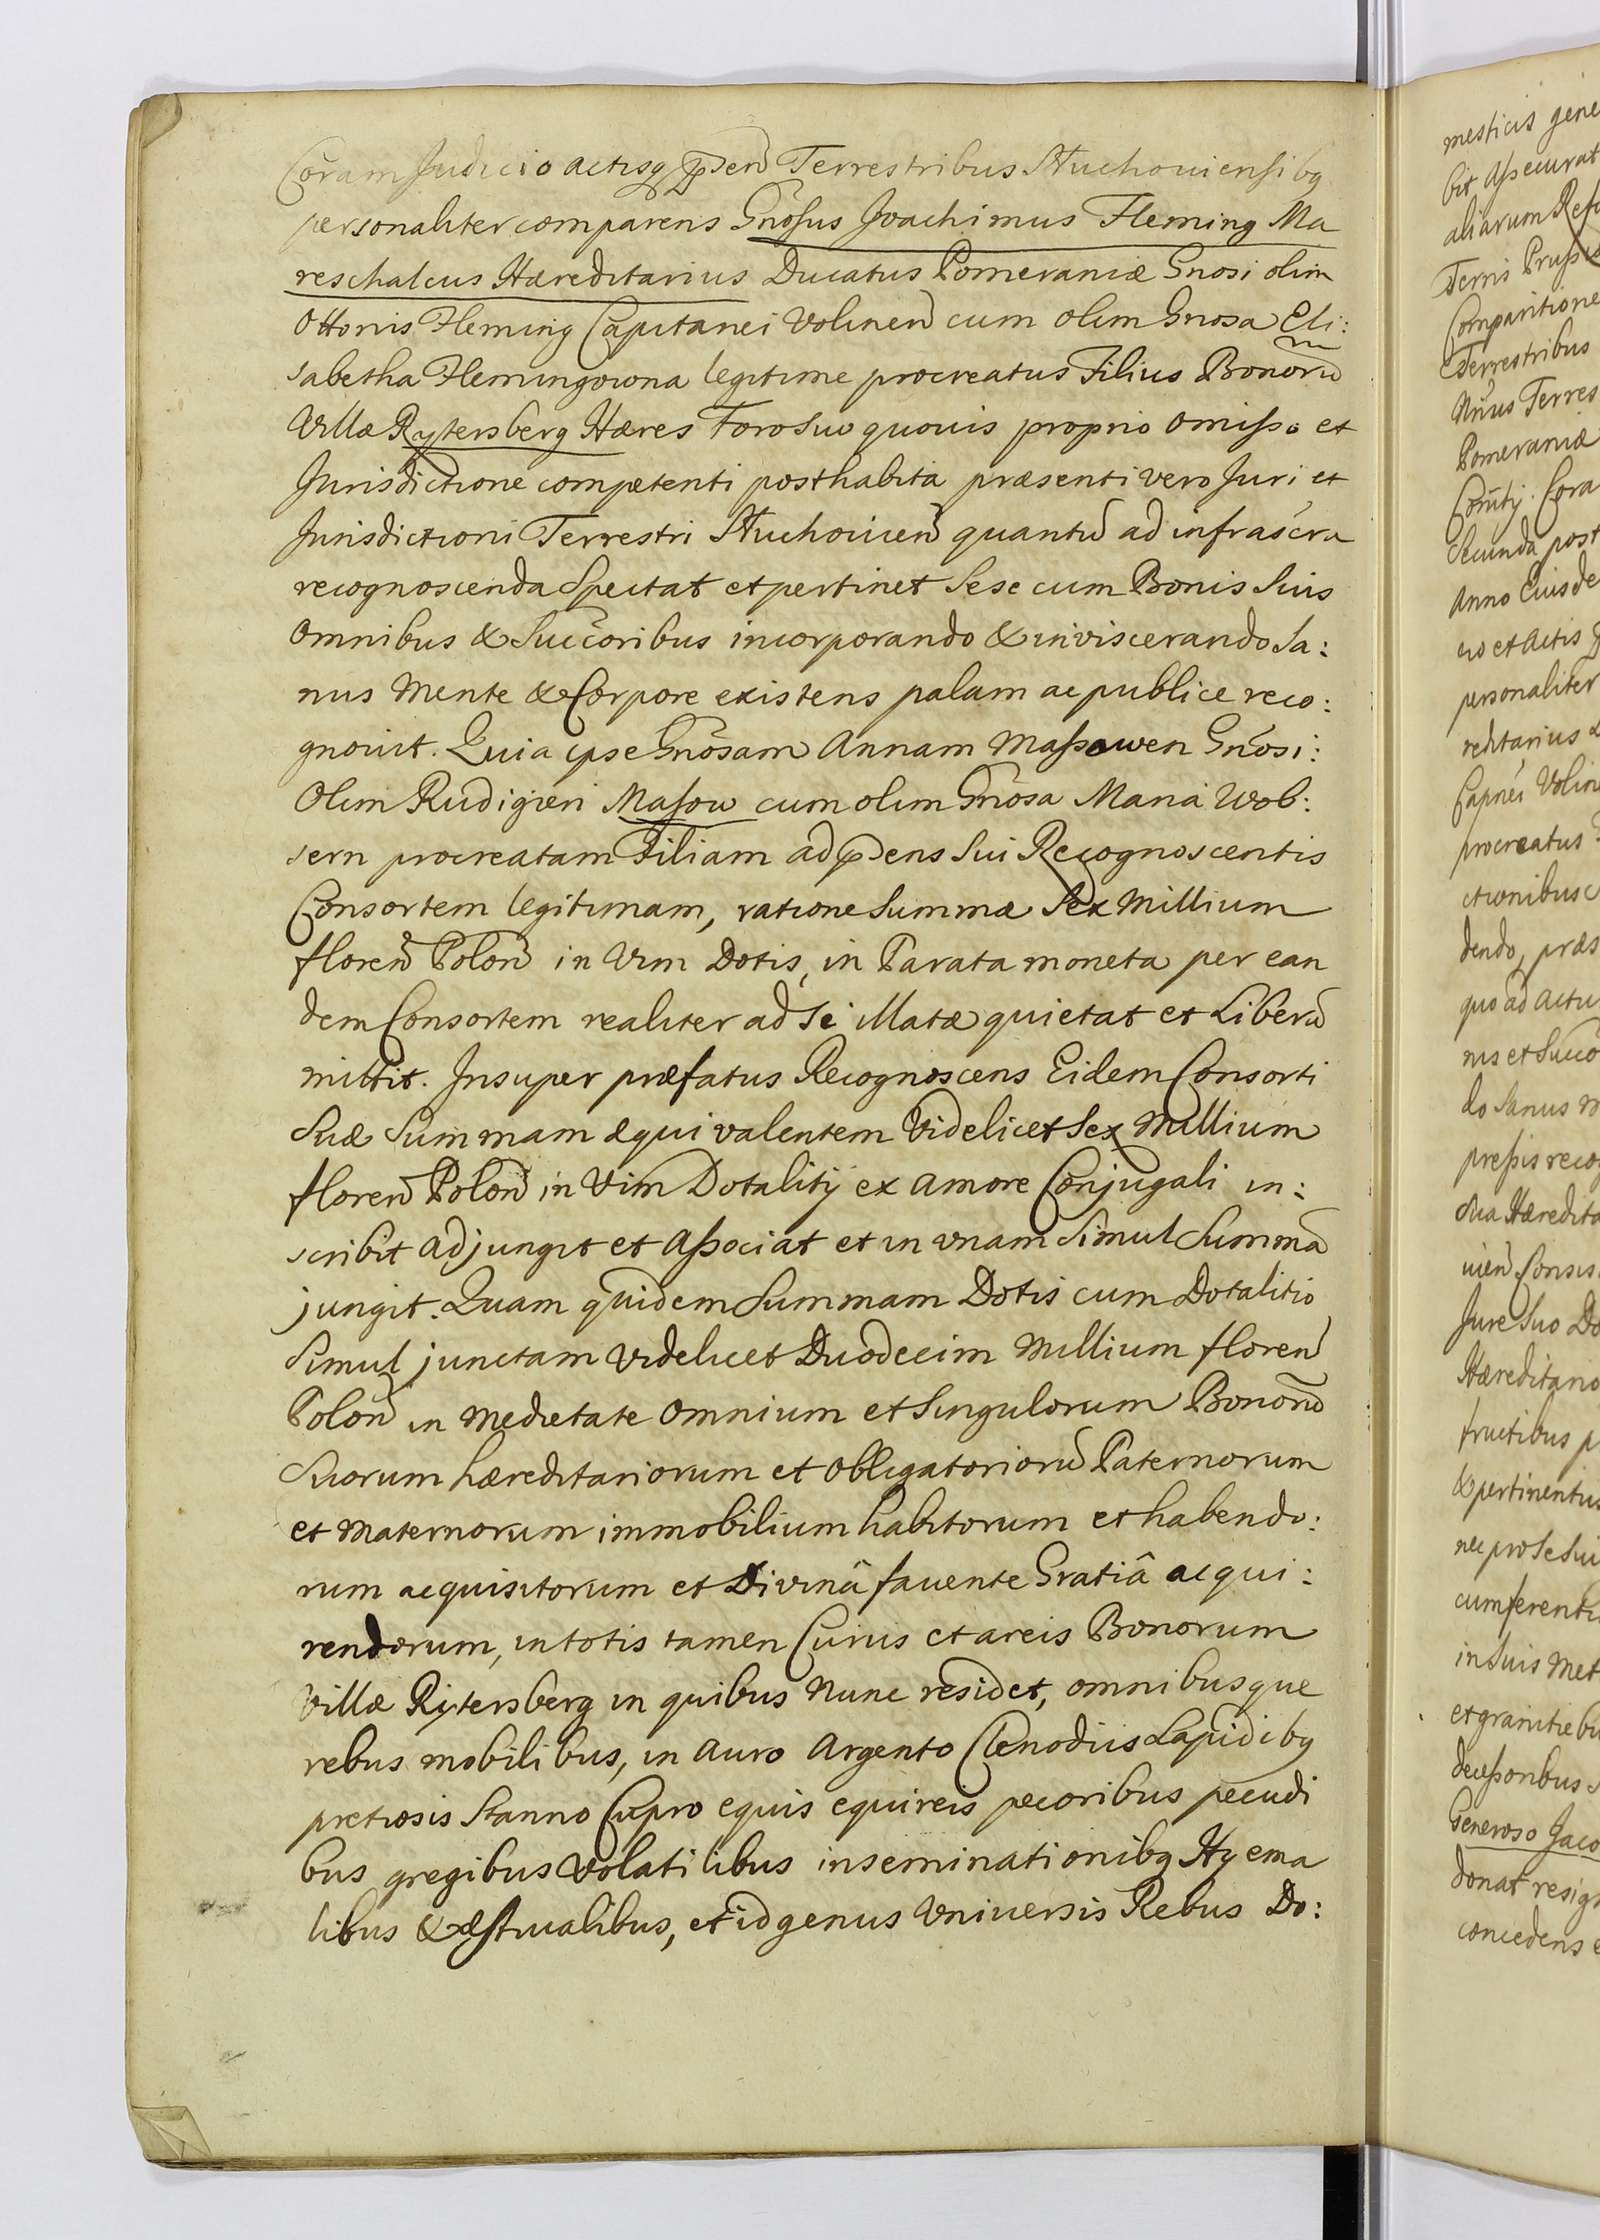 Coram Judicio actisq pden Terrestribus Stuchouiensibq
personaliter comparens Gnosus Joachimus Fleming Ma
reschalcus Hæreditarius Ducatus Pomeraniæ Gnosi olim
Ottonis Fleming Capitanei Volinen cum olim Gnosa Eli:
sabetha Flemingowna legitime procreatus Filius Bonorū
Villæ Rytersberg Hæres Foro suo quouis proprio omisso et
Jurisdictione competenti posthabita præsenti vero Juri et
Jurisdictioni Terrestri Stuchouien quantū ad infrascra
recognoscenda Spectat et pertinet Sese cum Bonis Suis
omnibus & Succoribus incorporando & inviscerando Sa:
nus Mente & Corpore existens palam ac publice reco:
gnouit. Quia ipse Gnosam Annam Massowen Gnosi:
Olim Rudigieri Masow cum olim Gnosa Maria Wob:
sern procreatam Filiam ad pdens Sui Recognoscentis
Consortem legitimam, ratione Summæ Sex Millium
floren Polon in Vim Dotis, in Parata moneta per ean
dem Consortem realiter ad Se illatæ quietat et Liberū
mittit. Insuper præfatus Recognoscens Eidem Consorti
Suæ Summam æquivalentem Videlicet Sex Millium
floren Polon in Vim Dotalitij ex amore Conjugali in:
scribit adjungit et associat et in unam Simul Summā
jungit. Quam quidem Summam Dotis cum Dotalitio
Simul junctam videlicet Duodecim Millium floren
Polon in Medietate omnium et Singulorum Bonorū
Suorum hæreditariorum et obligatoriorū Paternorum
et Maternorum immobilium habitorum et habendo:
rum acquisitorum et Divinâ fauente Gratiâ acqui:
rendorum, in totis tamen Curiis et areis Bonorum
Villæ Rytersberg in quibus Nunc residet, omnibusque
rebus mobilibus, in Auro Argento Clenodiis Lapidibq
pretiosis Stanno Cupro equis equireis pecoribus pecudi
bus gregibus Volatilibus inseminationibq Hyema
libus & Æstiualibus, et id genus Vniuersis Rebus Do:
mesticis gene
bit Assecurat
aliarum
Terris Prussiæ
Comparitione
Terrestribus
Terres
Pomeraniæ
Cora
Secunda post
Anno Eiusde
et Actis
personaliter
reditarius
Capnei Volin
procreatus
ctionibus
dendo, præs
quo ad Actu
nis et Succo
do Sanus m
pressis recog
Sua Hæredita
uien Consis
Jure Suo Do
Hæreditario
fructibus p
& pertinentiis
nec pro Se Sui
cumferentii
in Suis Met
et granitiebu
decessoribus
Generoso Jaco
donat resig
concedens